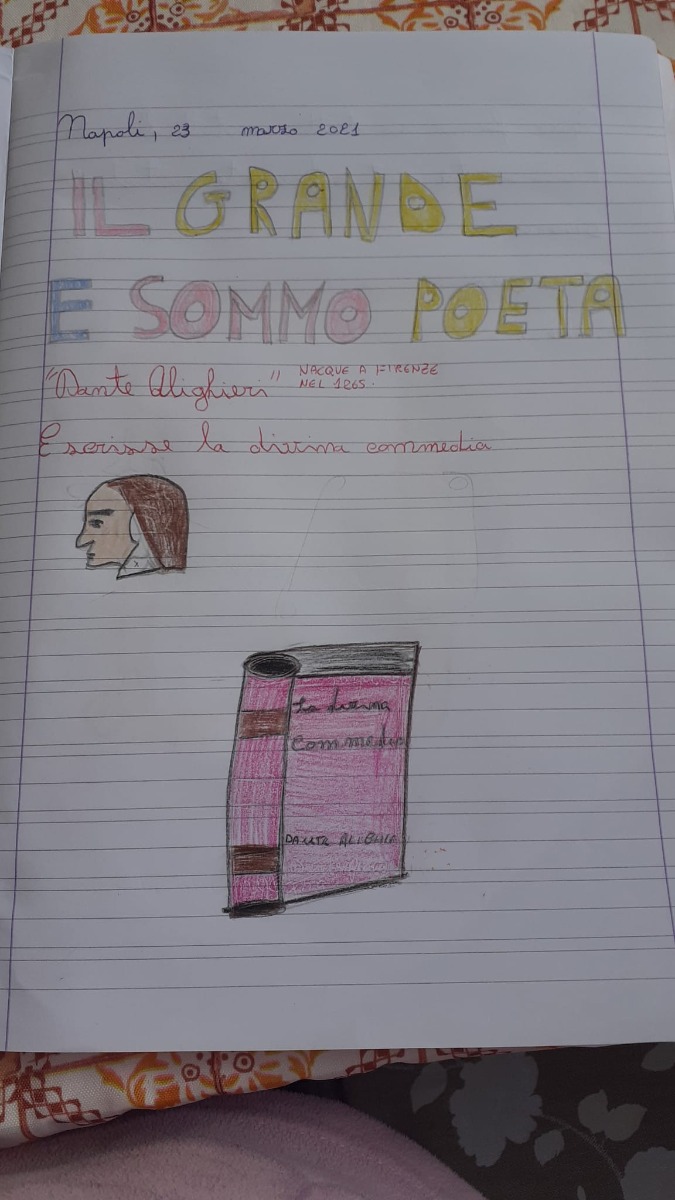 Napoli, 23 marzo 2021
IL GRANDE
E SOMMO POETA
"Dante Alighieri" NACQUE A FIRENZE
NEL 1265.
E scrisse la divina commedia
La divina
Commedia
DANTE